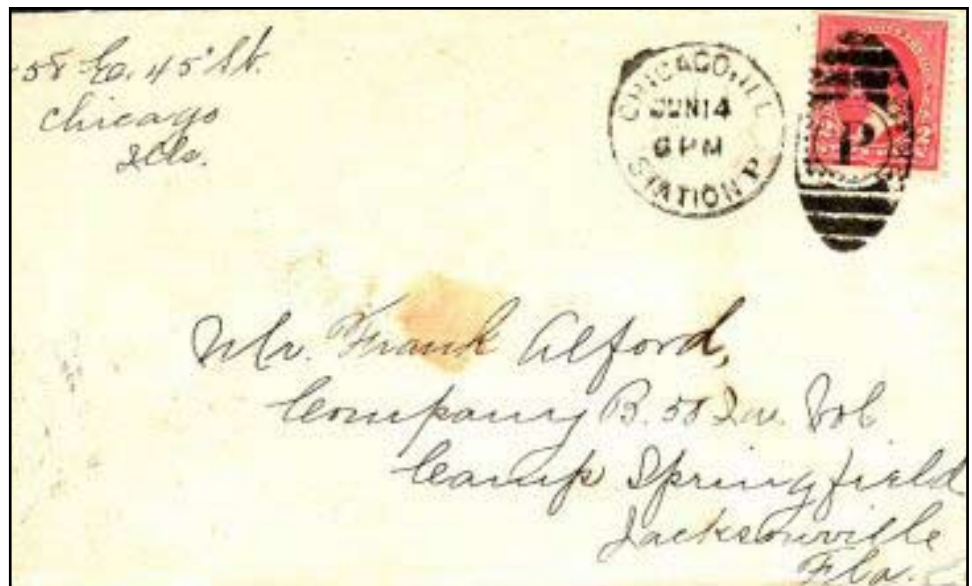 58 E. 45 St.
Chicago
Ills.
CHICAGO, ILL.
JUN 14
6 PM
STATION P
P
2 2
Mr. Frank Alford,
Company B. 50 Ia. Vol
Camp Springfield
Jacksonville
Fla.